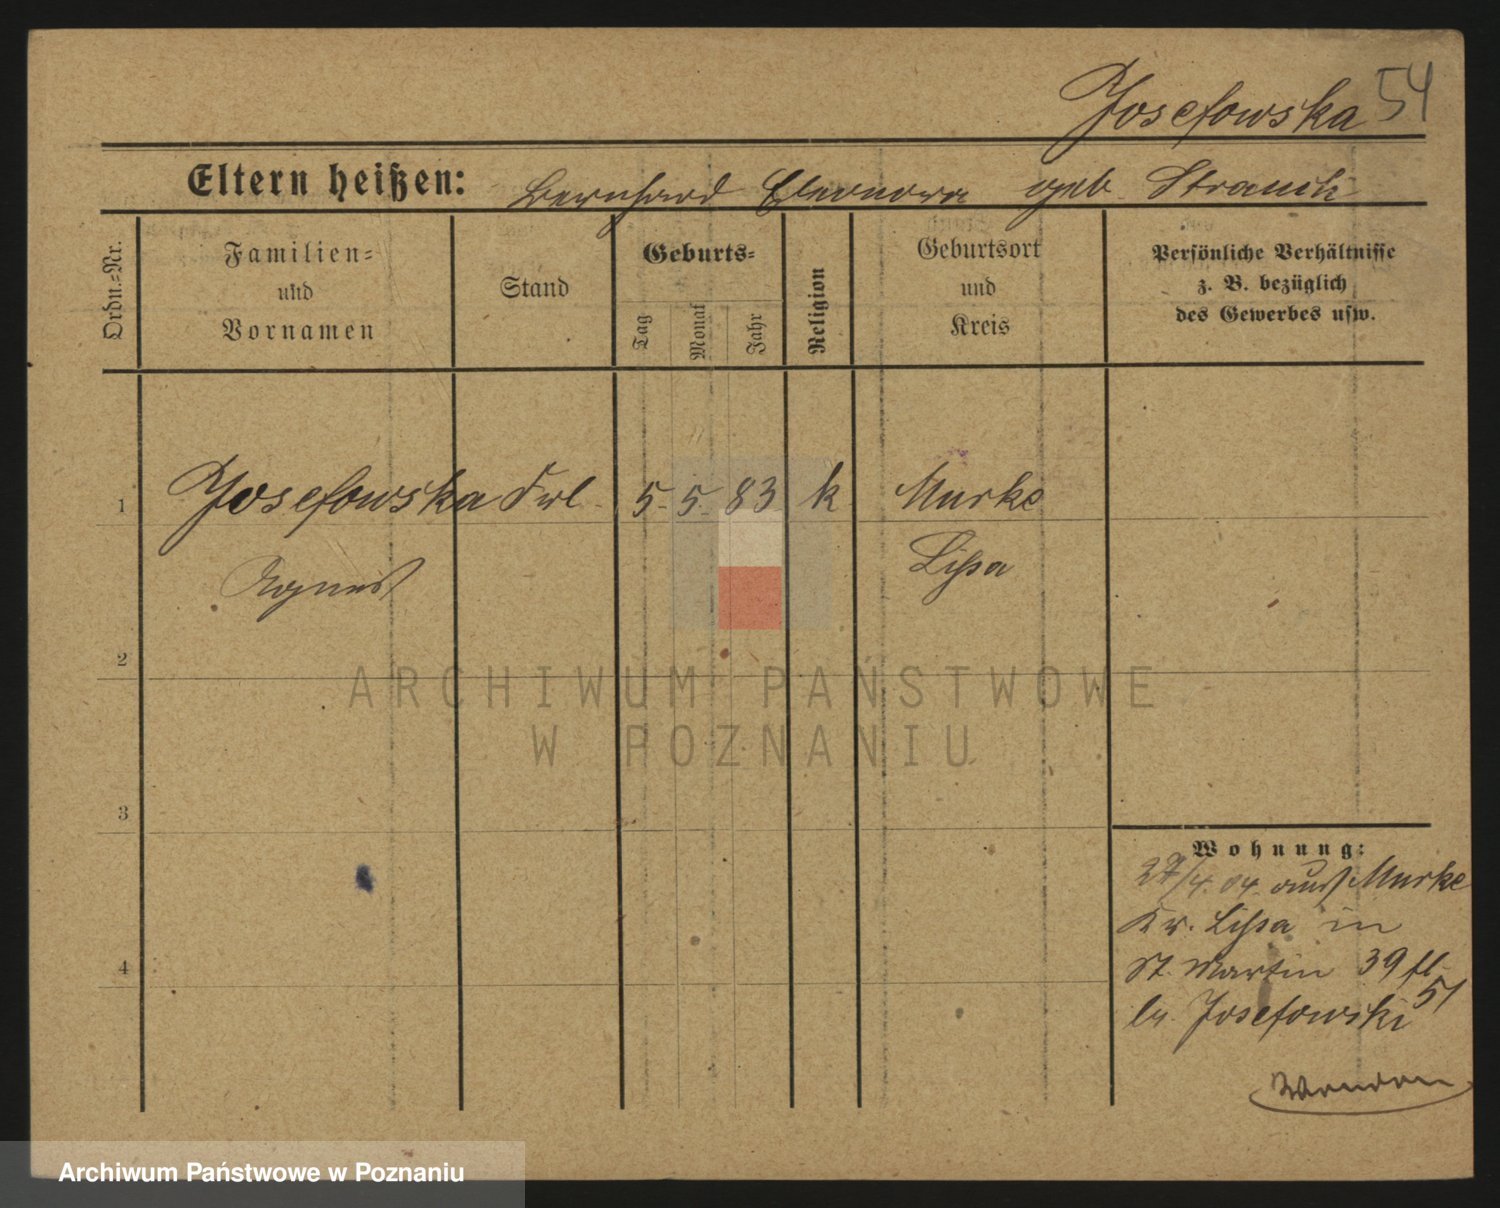 Josefowska 54
Eltern heißen: Bernhard Eleonora geb. Strauch
Ordn.-Nr.
Familien- und Vornamen
Stand
Geburts-
Tag
Monat
Jahr
Religion
Geburtsort und Kreis
Persönliche Verhältnisse
z. B. bezüglich
des Gewerbes usw.
1 Josefowska Frl. 5. 5. 83 k Murke
Agnes Lissa
2
3
4
Wohnung:
27/4. 04. aus Murke
Kr. Lissa in
St. Martin 39 fl.
br. Josefowski 51
ARCHIWUM PAŃSTWOWE
W POZNANIU
Archiwum Państwowe w Poznaniu